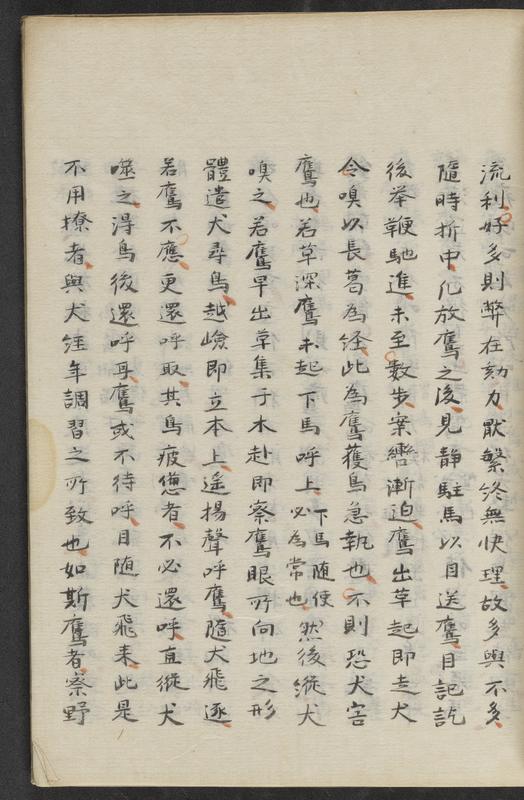 流利好多則弊在効力厭繁終無快理故多與不多
隨時折中凡放鷹之後見静駐馬以目送鷹目記訖
後举鞭馳進未至數步案轡漸迫鷹出草起即走犬
令嗅以長葛為経此為鷹獲鳥急執也不則恐犬害
鷹也若草深鷹未起下馬呼上下馬随便必為常也然後縦犬
嗅之若鷹早出草集于木赴即察鷹眼所向地之形
體遣犬尋鳥越嶮即立本上遥揚聲呼鷹隨犬飛逐
若鷹不應更還呼取其鳥疲憊者不必還呼直縦犬
噬之得鳥後還呼耳鷹或不待呼目随犬飛来此是
不用撩者與犬経年調習之所致也如斯鷹者察野